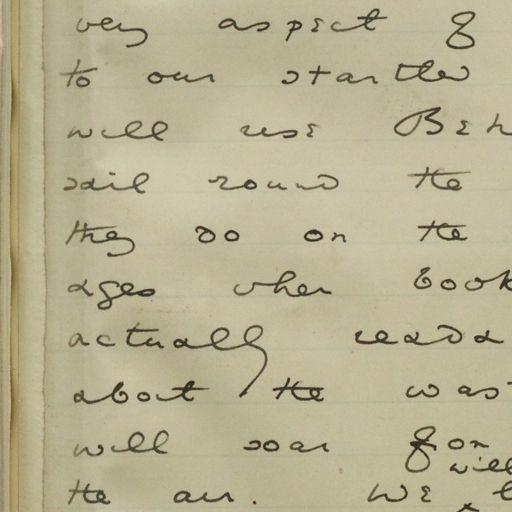 very aspect of
to our startled
will use Beh
sail round the
they do on the
ages when book
actually reada
about the was
will soar
will
the air. We